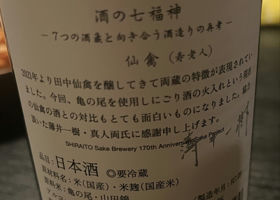 酒の七福神
－7つの酒蔵と向き合う酒造りの再考－
仙禽（寿老人）
2021年より田中仙禽を醸してきて両蔵の特徴が表現されてい
ました。今回、亀の尾を使用しにごり酒の火入れという
仙禽の酒との対比もとても面白いものになりました。
頂いた薄井一樹・真人両氏に感謝申し上げます。
SHIRAITO Sake Brewery 170th Anniversary Sake Project
品目：日本酒 ◎要冷蔵
原材料名：米(国産)・米麹(国産米)
亀の尾・山田錦
製造年月